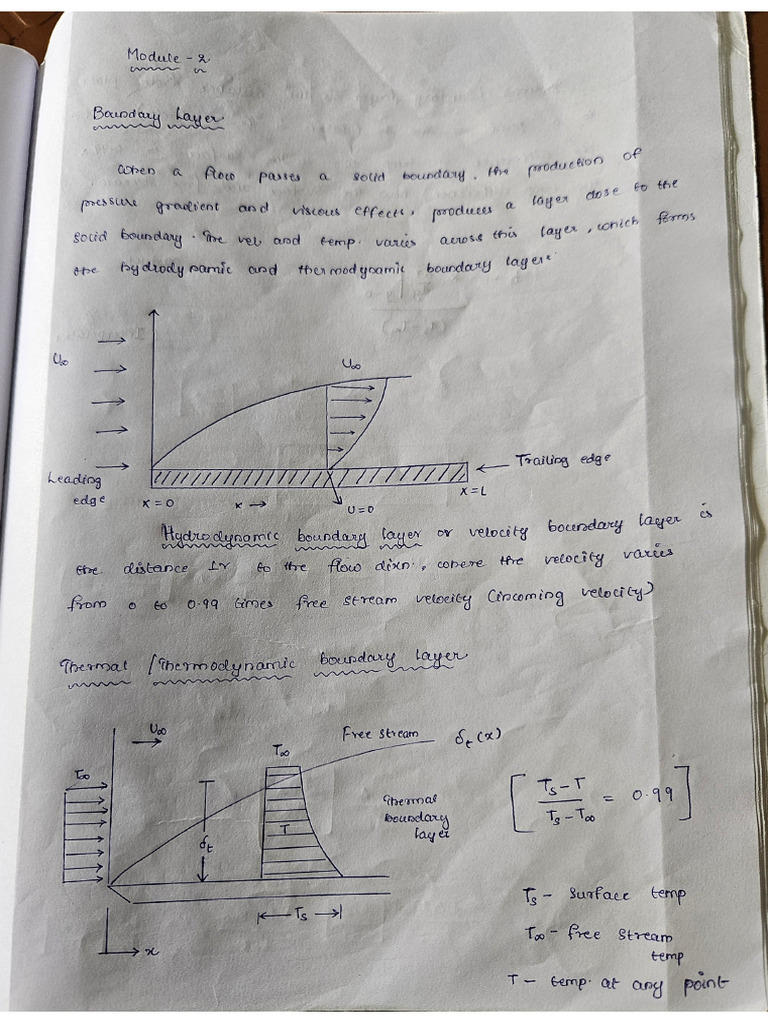 Module - 2
Boundary Layer
When a flow passes a solid boundary. the production of
pressure gradient and viscous effects, produces a layer close to the
solid boundary. The vel. and temp. varies across this layer, which forms
the hydrodynamic and thermodynamic boundary layer.
U∞
U∞
Leading edge
x = 0
x →
U = 0
x = L
Trailing edge
Hydrodynamic boundary layer or velocity boundary layer is
the distance ⊥r to the flow dixn., where the velocity varies
from 0 to 0.99 times free stream velocity (incoming velocity)
Thermal / Thermodynamic boundary layer
U∞
T∞
T∞
Free stream
δt(x)
Thermal
boundary
layer
T
δt
Ts
x
[ (Ts - T) / (Ts - T∞) = 0.99 ]
Ts - surface temp
T∞ - free stream
temp
T - temp. at any point